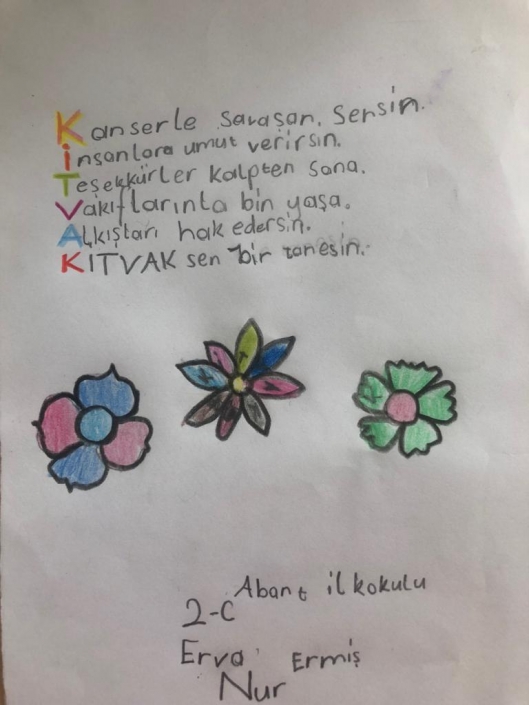 Kanserle savaşan, sensin.
İnsanlara umut verirsin.
Teşekkürler kalpten sana.
Vakıflarınla bin yaşa.
Alkıştarı hak edersin.
KITVAK sen bir tanesin.
Abant ilkokulu
2-C
Erva Ermiş
Nur